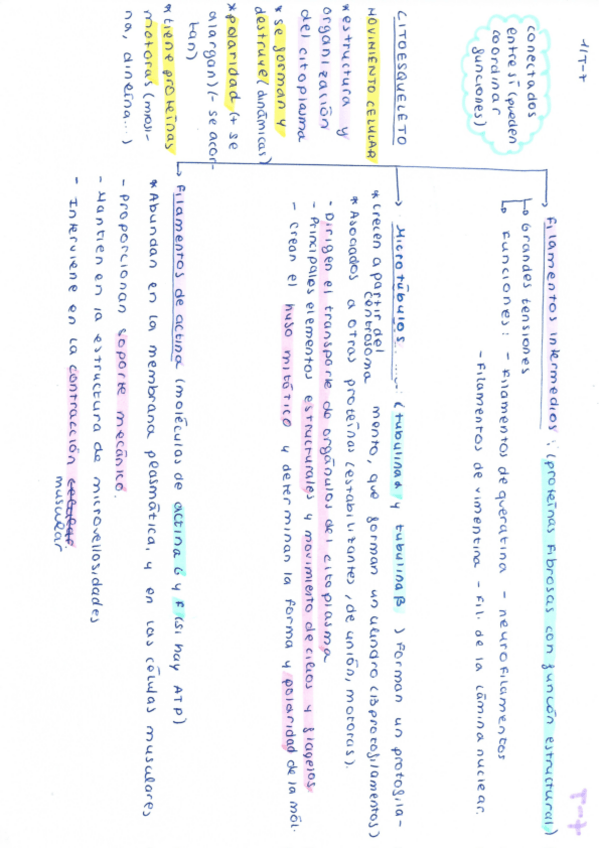 1/T-7
T-7
conectados
entre sí (pueden
coordinar
funciones)
CITOESQUELETO
MOVIMIENTO CELULAR
* estructura y
organización
del citoplasma
* se forman y
destruye (dinámicas)
* polaridad (+ se
alargan) (- se acor-
tan)
* tiene proteínas
motoras (miosi-
na, dineína...)
→ Filamentos intermedios: (proteínas fibrosas con función estructural)
↳ Grandes tensiones
↳ Funciones: - Filamentos de queratina - neurofilamentos
- Filamentos de vimentina - Fil. de la lámina nuclear.
→ Microtúbulos ......: (tubulina α y tubulina β) forman un protofila-
* crecen a partir del mento, que forman un cilindro (13 protofilamentos)
centrosoma
* Asociados a otras proteínas (estabilizantes, de unión, motoras).
- Dirigen el transporte de orgánulos del citoplasma
- Principales elementos estructurales y movimiento de cilios y flagelos
- Crean el huso mitótico y determinan la forma y polaridad de la mól.
→ Filamentos de actina (moléculas de actina G y F (si hay ATP)
* Abundan en la membrana plasmática, y en las células musculares
- Proporcionan soporte mecánico.
- Mantien en la estructura de microvellosidades
- Interviene en la contracción celular
muscular